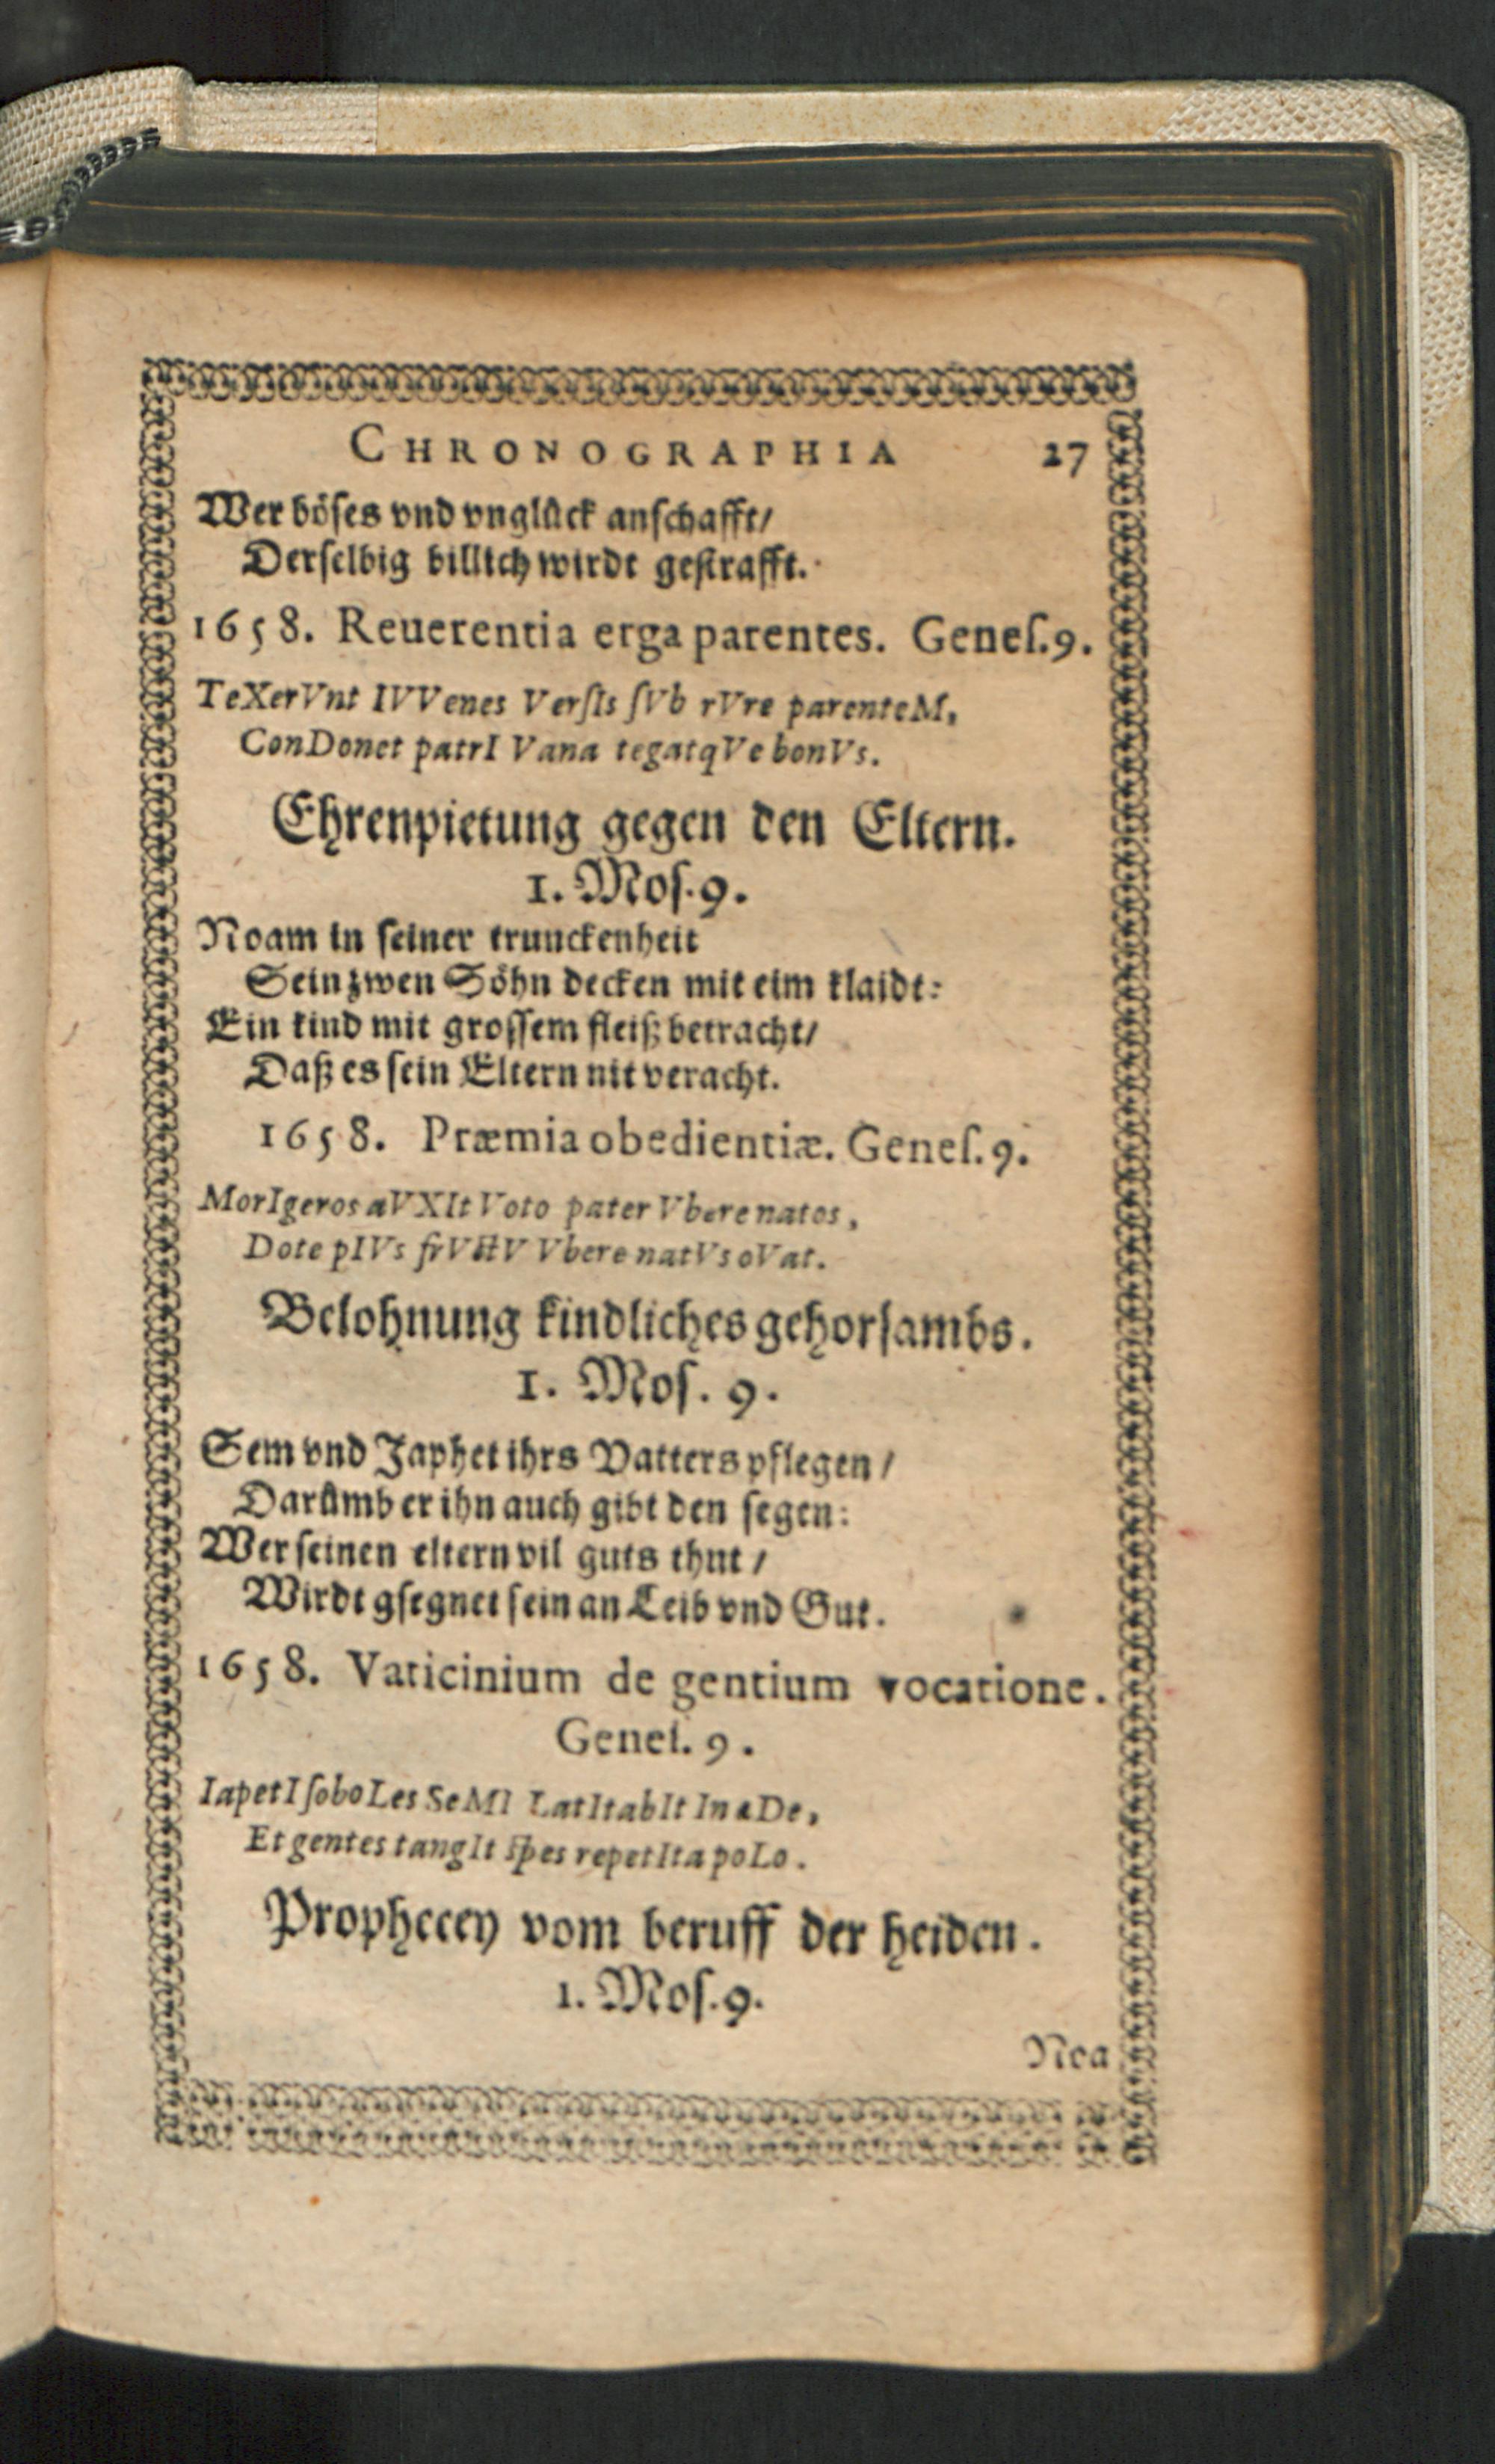 CHRONOGRAPHIA 27
Wer böses vnd vnglück anschafft/
Derselbig billich wirdt gestrafft.
1658. Reuerentia erga parentes. Genes. 9.
TeXerVnt IVVenes VersIs sVb rVre parenteM,
ConDonet patrI Vana tegatqVe bonVs.
Ehrenpietung gegen den Eltern.
1. Mos. 9.
Noam in seiner trunckenheit
Sein zwen Söhn decken mit eim klaidt:
Ein kind mit grossem fleiß betracht/
Daß es sein Eltern nit veracht.
1658. Præmia obedientiæ. Genes. 9.
MorIgeros aVXIt Voto pater Vbere natos,
Dote pIVs frVctV Vbere natVs oVat.
Belohnung kindliches gehorsambs.
1. Mos. 9.
Sem vnd Japhet ihrs Vatters pflegen/
Darümb er ihn auch gibt den segen:
Wer seinen eltern vil guts thut/
Wirdt gsegnet sein an Leib vnd Gut.
1658. Vaticinium de gentium vocatione.
Genes. 9.
IapetI soboLes SeMI LatItabIt In æDe,
Et gentes tangIt spes repetIta poLo.
Prophecey vom beruff der heiden.
1. Mos. 9.
Noa